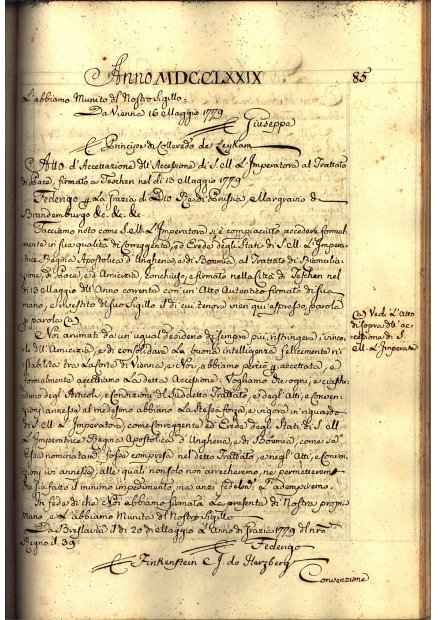 Anno MDCCLXXIX 85
L'abbiamo Munito del Nostro Sigillo.
Da Vienna 16 Maggio 1779
Giuseppe
Principe di Colloredo de Leykam
Atto d'Accettazione dell'Accessione di S. M. L'Imperatore al Trattato
di Pace, firmato a Teschen nel dì 13 Maggio 1779
Federigo p. la Grazia di Dio Re di Prussia, Margravio di
Brandemburgo &c. &c. &c.
Facciamo noto come S. M. L'Imperatore, s'è compiaciuto accedere formal-
mente in sua qualità di Correggente, ed Erede degli Stati di S. M. L'Impera-
trice Regina Apostolica d'Ungheria, e di Boemia, al Trattato di Riconcilia-
zione, di Pace, ed Amicizia, conchiuso, e firmato nella Città di Teschen nel
dì 13 Maggio dell'Anno corrente con un'Atto Autentico firmato di sua
mano, e rivestito di suo Sigillo il di cui tenore vien quì espresso parola
p parola (a)
(a) Vedi L'Atto
di sopra dell'ac-
cessione di S.
M. L'Imperato
Noi animati da un'ugual desiderio di sempre più ristringere i vinco-
li dell'Amicizia, e di consolidare La buona intelligenza felicemente ri-
stabilita tra La Corte di Vienna, e Noi, abbiamo perciò accettata, e
formalmente accettiamo La detta Accessione: Vogliamo che ogni, e ciasche-
duno degli Articoli, e Condizioni del Suddetto Trattato, e degl'Atti, e Conven-
zioni annesse al medesimo abbiano La stessa forza, e vigore in riguardo
di S. M. L'Imperatore, come Correggente ed Erede degli Stati di S. M.
L'Imperatrice Regina Apostolica d'Ungheria, e di Boemia, come se
Essa nominatam. fosse compresa nel detto Trattato, e negl'Atti, e Conven-
zioni in annesso, alle quali non solo non arrecheremo, ne permetteremo
che sia fatto il minimo impedimento, ma anzi fedelm. L'adempiremo.
In fede di che Noi abbiamo firmata La presente di Nostra propria
mano, e L'abbiamo Munita del Nostro Sigillo
Da Breslavia il dì 20 di Maggio L'Anno di Grazia 1779 del nro
Regno il 39
Federigo
Finkenstein E. J. de Herzberg
Convenzione